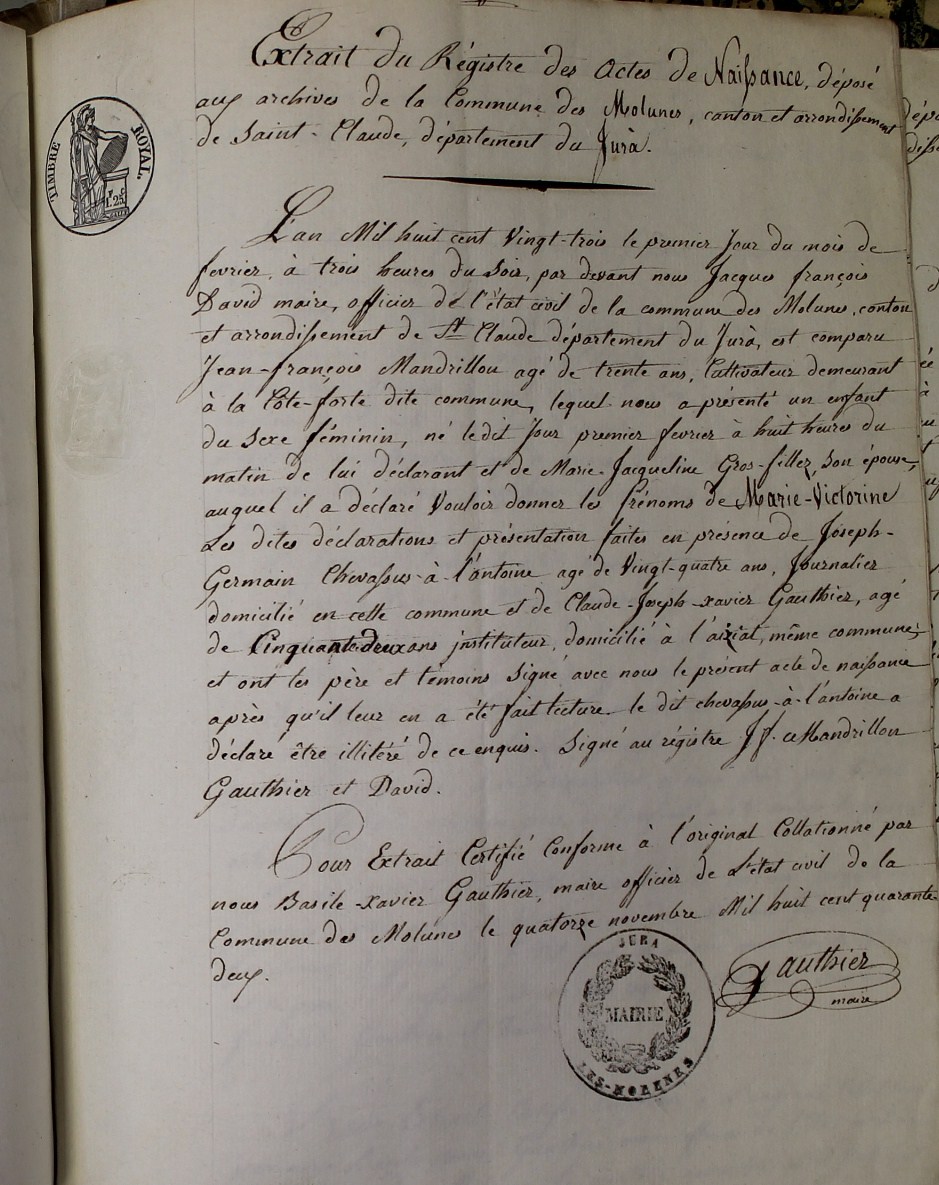 Extrait du Régistre des Actes de Naissance, déposé
aux archives de la Commune des Molunes, canton et arrondissement
de Saint-Claude, département du Jura.
TIMBRE ROYAL.
1F. 25c
L'an Mil huit cent Vingt-trois le premier Jour du mois de
fevrier, à trois heures du Soir, par devant nous Jacques françois
David maire, officier de l'état civil de la commune des Molunes, canton
et arrondissement de St Claude département du Jura, est comparu
Jean-françois Mandrillon agé de trente ans, Cultivateur demeurant
à la Côte-forte dite commune, lequel nous a présenté un enfant
du Sexe féminin, né ledit Jour premier fevrier à huit heures du
matin de lui déclarant et de Marie-Jacqueline Gros-fillez, son épouse,
auquel il a déclaré Vouloir donner les Prénoms de Marie-Victorine
Les dites déclarations et présentation faites en présence de Joseph-
Germain Chevassus-à-l'antoine agé de Vingt-quatre ans, Journalier
domicilié en cette commune et de Claude-Joseph-xavier Gauthier, agé
de Cinquante deux ans instituteur, domicilié à l'aiziat, même commune,
et ont les père et témoins Signé avec nous le présent acte de naissance
après qu'il leur en a été fait lecture le dit chevassus-à-l'antoine a
déclaré être illitéré de ce enquis. Signé au régistre J f. Mandrillon
Gauthier et David.
Pour Extrait Certifié Conforme à l'original Collationné par
nous Basile-xavier Gauthier, maire officier de l'état civil de la
Commune des Molunes le quatorze novembre Mil huit cent quarante
deux.
Gauthier
maire
JURA
MAIRIE